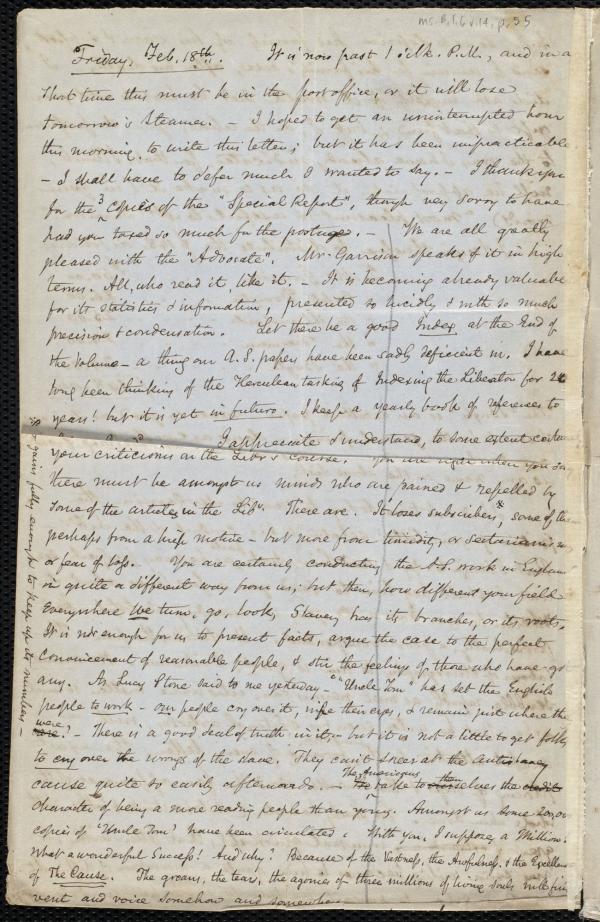 ms. B.1.6 v.14, p.35
Friday, Feb. 18th. It is now past 1 o'clk. P.M., and in a
short time this must be in the post office, or it will lose
tomorrow's Steamer. - I hoped to get an uninterrupted hour
this morning, to write this letter; but it has been impracticable
- I shall have to defer much I wanted to say. - I thank you
for the 3 copies of the "Special Report", though very sorry to have
had you taxed so much for the postage. - We are all greatly
pleased with the "Advocate". Mr. Garrison speaks of it in high
terms. All, who read it, like it. - It is becoming already valuable
for its statistics & information, presented so lucidly, & with so much
precision & condensation. Let there be a good Index at the End of
the Volume - a thing our A.S. papers have been sadly deficient in. I have
long been thinking of the Herculean task of Indexing the Liberator for 22
years! but it is yet in futuro. I keep a yearly book of references to
I appreciate & understand, to some extent certain
your criticisms on the Libr's course. You are right when you say
there must be amongst us minds who are pained & repelled by
some of the articles in the Libr. There are. It loses subscribers,* some of them
perhaps from a high motive - but more from timidity, or sectarianism,
or fear of loss. You are certainly conducting the A.S. work in England
in quite a different way from us; but then, how different your field.
Everywhere we turn, go, look, Slavery has its branches, or its roots.
It is not enough for us to present facts, argue the case to the perfect
convincement of reasonable people, & stir the feelings of those who have got
any. As Lucy Stone said to me yesterday - "Uncle Tom" has set the English
people to work - our people cry over it, wipe their eyes, & remain just where they
were." - There is a good deal of truth in it - but it is not a little to get folks
to cry over the wrongs of the slave. They can't sneer at the Antislavery
cause quite so easily afterwards. - The Americans take to themselves the credit
character of being a more reading people than yours. Amongst us some 200,000
copies of 'Uncle Tom' have been circulated; With you, I suppose, a Million.
What a wonderful Success! And why? Because of the Vastness, the Awfulness, & the Excellence
of The Cause. The groans, the tears, the agonies of three millions of living souls will find
vent and voice somehow and somewhere
* It gains fully enough to keep up its numbers -